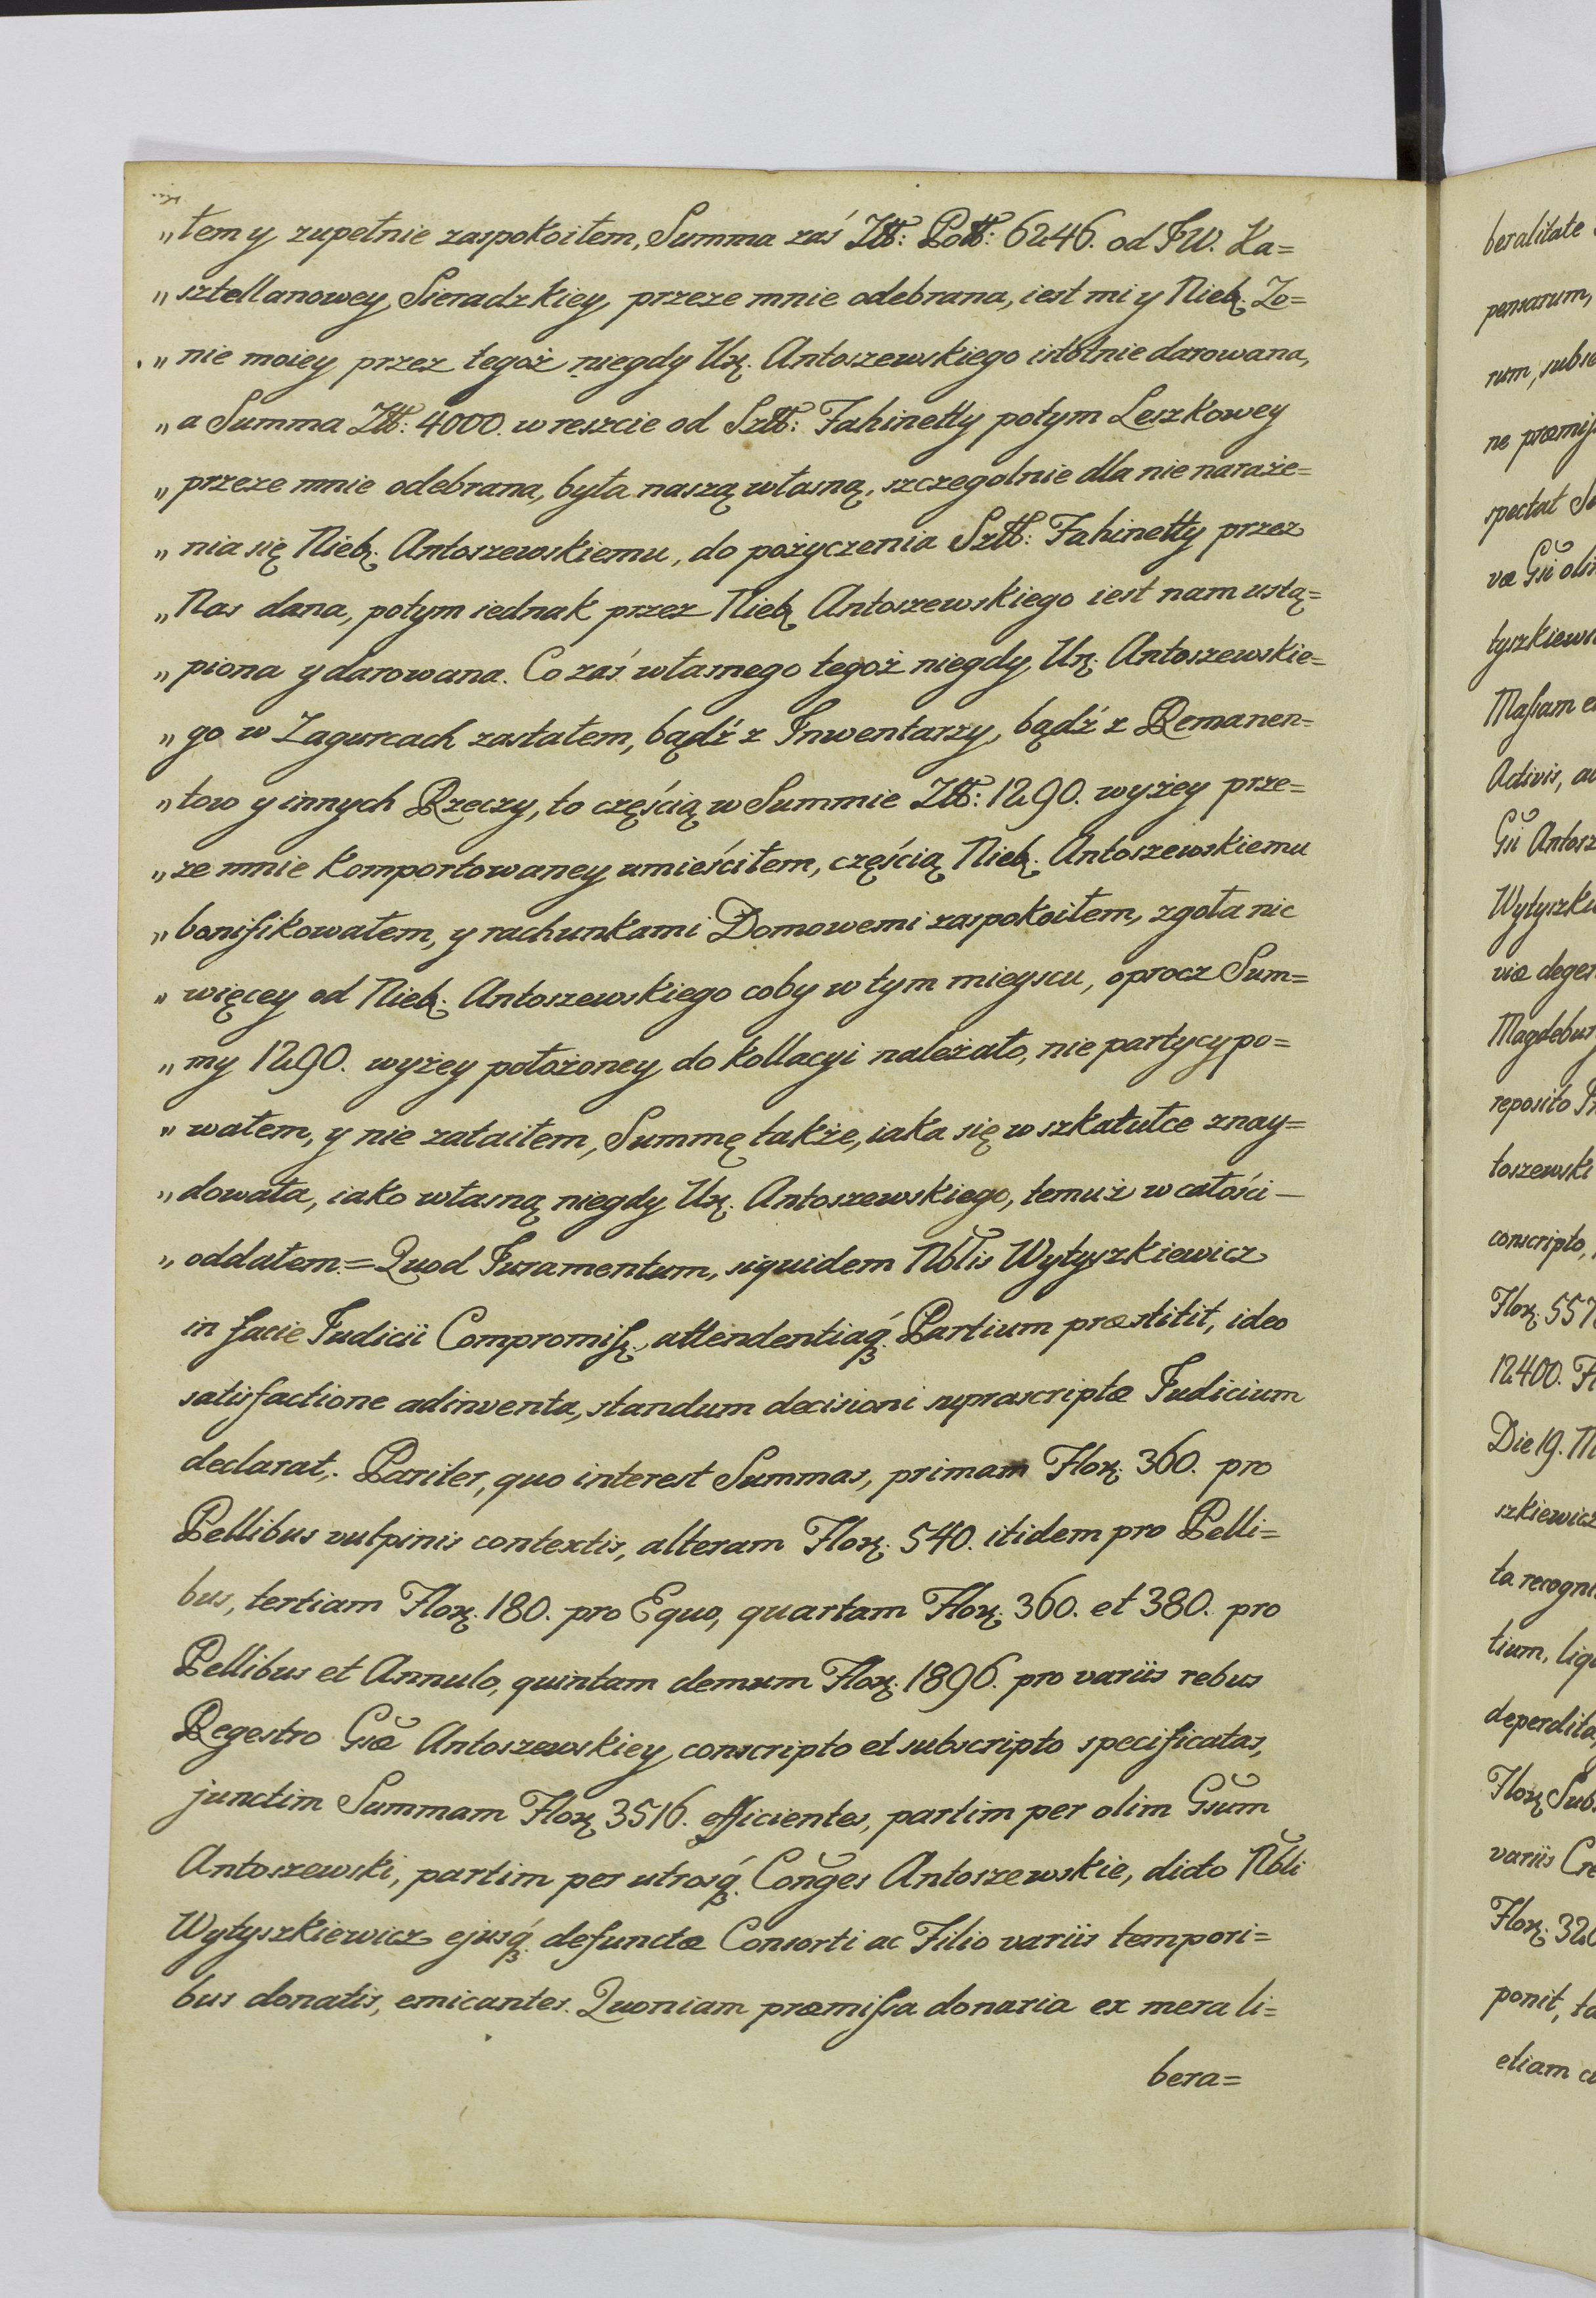 „łem y zupełnie zaspokoiłem, Summa zaś Złł: Poll: 6246. od JW. Ka=
„sztellanowey Sieradzkiey przeze mnie odebrana, iest mi y Nieb. Zo=
„nie moiey przez tegoż niegdy Ur. Antoszewskiego istotnie darowana,
„a Summa Złł: 4000. w reszcie od Szll: Fahinetty potym Leszkowey
„przeze mnie odebrana, była naszą własną, szczegolnie dla nie naraże=
„nia się Nieb. Antoszewskiemu, do pożyczenia Szll: Fahinetty przez
„Nas dana, potym iednak przez Nieb Antoszewskiego iest nam ustą=
„piona y darowana. Co zaś własnego tegoż niegdy Ur. Antoszewskie=
„go w Zagurcach zastałem, bądź z Inwentarzy, bądź z Remanen=
„tow y innych Rzeczy, to częścią w Summie Złł: 1290. wyżey prze=
„ze mnie komportowaney umieściłem, częścią Nieb. Antoszewskiemu
„bonifikowałem, y rachunkami Domowemi zaspokoiłem, zgoła nic
„więcey od Nieb. Antoszewskiego coby w tym mieyscu, oprocz Sum=
„my 1290. wyżey położoney do kollacyi należało, nie partycypo=
„wałem, y nie zataiłem, Summę także, iaka się w szkatułce znay=
„dowała, iako własną niegdy Ur. Antoszewskiego, temuż w całości —
„oddałem.= Quod Juramentum, siquidem Nblis Wytyszkiewicz
in facie Judicii Compromiss. attendentiaq. Partium præstitit, ideo
satisfactione adinventa, standum decisioni suprascriptæ Judicium
declarat. Pariter, quo interest Summas, primam Flor. 360. pro
Pellibus vulpinis contextis, alteram Flor. 540. itidem pro Pelli=
bus, tertiam Flor. 180. pro Equo, quartam Flor. 360. et 380. pro
Pellibus et Annulo, quintam demum Flor. 1896. pro variis rebus
Regestro Gsæ Antoszewskiey conscripto et subscripto specificatas,
junctim Summam Flor 3516. efficientes, partim per olim Gsum
Antoszewski, partim per utrosq. Conges Antoszewskie, dicto Nbli
Wytyszkiewicz ejusq. defunctæ Consorti ac Filio variis tempori=
bus donatis, emicantes. Quoniam præmissa donaria ex mera li=
bera=
beralitate
pensarum,
rum, subse
ne præmis
spectat Su
væ Gsi olim
tyszkiewi
Massam e
Activis, au
Gsi Antosz
Wytyszki
viæ degen
Magdebur
reposito Pr
toszewski
conscripto,
Flor. 557
12400. Fl
Die 19. M
szkiewicz
ta recogni
tium, liqu
deperdita,
Flor. Sub
variis Cre
Flor. 320
ponit, ta
etiam cu